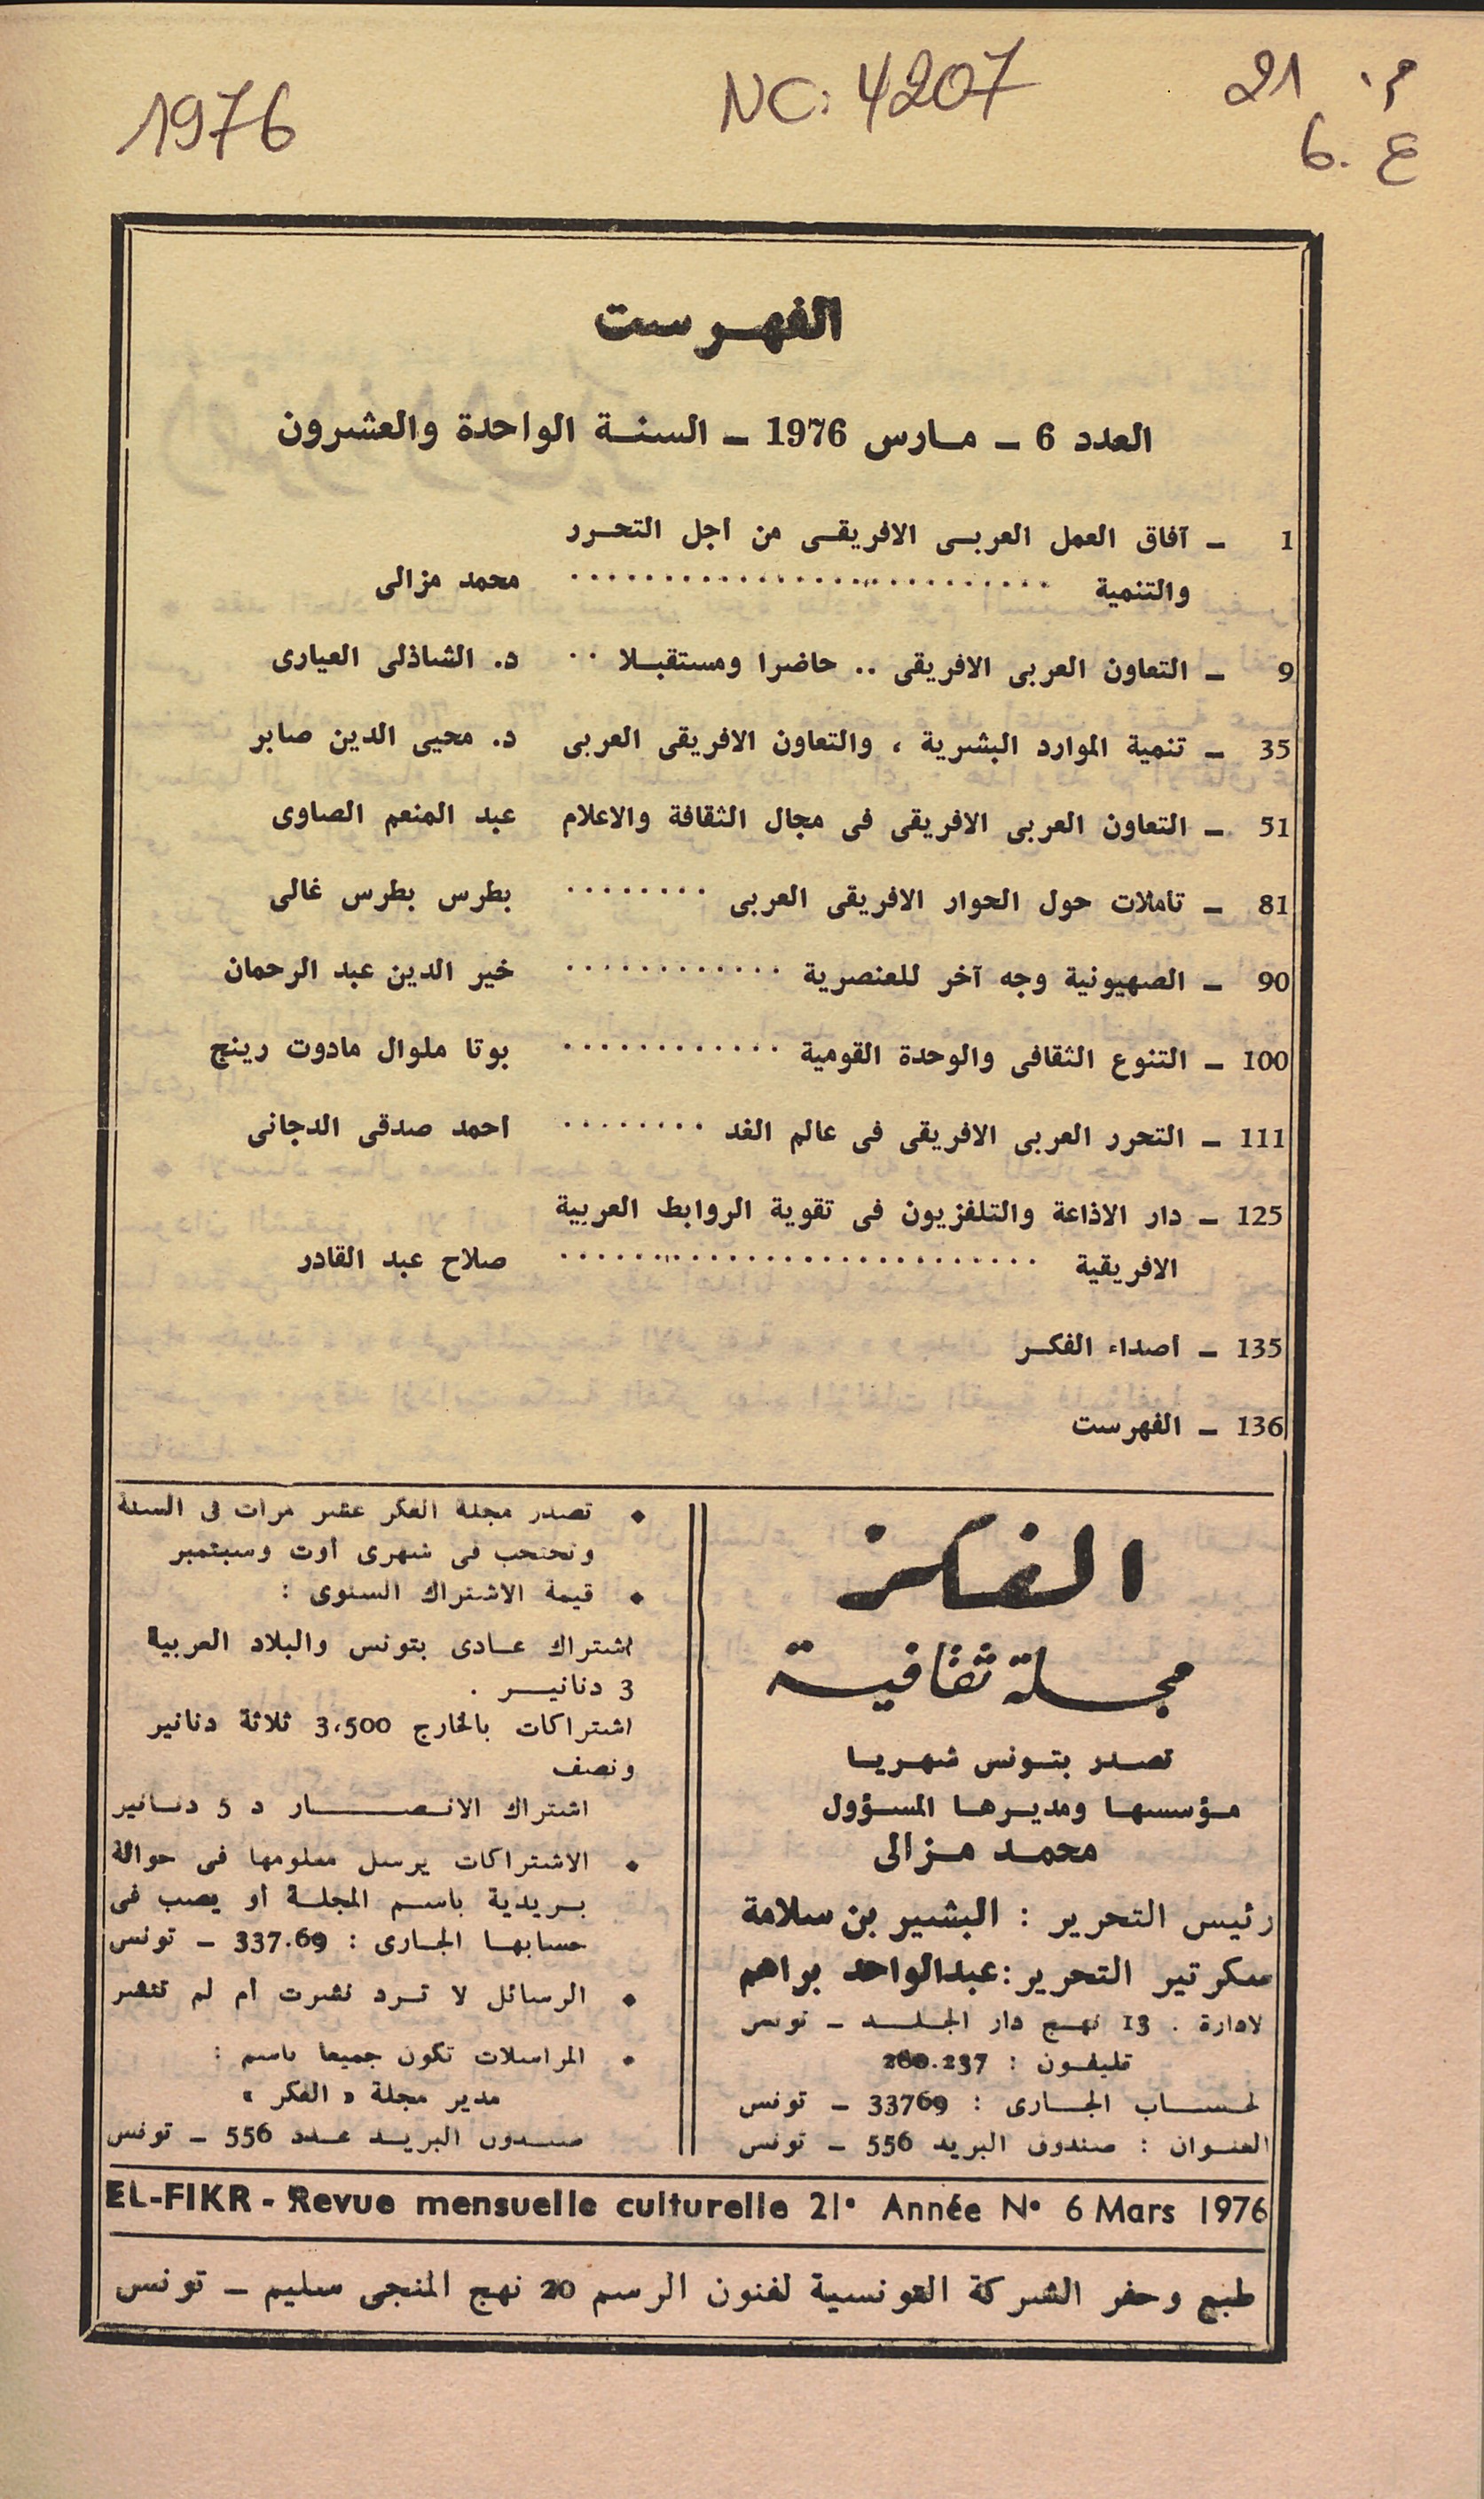 1976
NC: 4207
م. 21
ع. 6
الفهرست
العدد 6 – مارس 1976 – السنة الواحدة والعشرون
1 – آفاق العمل العربى الافريقى من اجل التحرر
والتنمية .......................... محمد مزالى
9 – التعاون العربى الافريقى .. حاضرا ومستقبلا .. د. الشاذلى العيارى
35 – تنمية الموارد البشرية ، والتعاون الافريقى العربى د. محيى الدين صابر
51 – التعاون العربى الافريقى فى مجال الثقافة والاعلام عبد المنعم الصاوى
81 – تاملات حول الحوار الافريقى العربى ........ بطرس بطرس غالى
90 – الصهيونية وجه آخر للعنصرية ............ خير الدين عبد الرحمان
100 – التنوع الثقافى والوحدة القومية ............ بوتا ملوال مادوت رينج
111 – التحرر العربى الافريقى فى عالم الغد ........ احمد صدقى الدجانى
125 – دار الاذاعة والتلفزيون فى تقوية الروابط العربية
الافريقية .......................... صلاح عبد القادر
135 – اصداء الفكر
136 – الفهرست
الفكر
مجلة ثقافية
تصدر بتونس شهريا
مؤسسها ومديرها المسؤول
محمد مزالى
رئيس التحرير : البشير بن سلامة
سكرتير التحرير : عبدالواحد براهم
لادارة . 13 نهج دار الجلد – تونس
تليفون : 260.237
لحساب الجارى : 33769 – تونس
العنوان : صندوق البريد 556 – تونس
• تصدر مجلة الفكر عشر مرات فى السنة
وتحتجب فى شهرى أوت وسبتمبر
• قيمة الاشتراك السنوى :
اشتراك عادى بتونس والبلاد العربية
3 دنانير .
اشتراكات بالخارج 3،500 ثلاثة دنانير
ونصف
اشتراك الانصار د 5 دنانير
• الاشتراكات يرسل معلومها فى حوالة
بريدية باسم المجلة أو يصب فى
حسابها الجارى : 337.69 – تونس
• الرسائل لا ترد نشرت أم لم تنشر
• المراسلات تكون جميعا باسم :
مدير مجلة « الفكر »
صندوق البريد عدد 556 – تونس
EL-FIKR - Revue mensuelle culturelle 21• Année N• 6 Mars 1976
طبع وحفر الشركة التونسية لفنون الرسم 20 نهج المنجى سليم – تونس